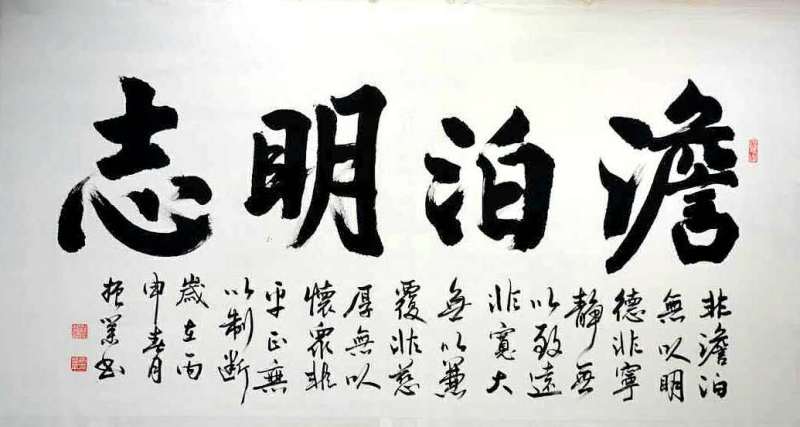 澹泊明志
非澹泊
無以明
德非寧
靜無
以致遠
非寬大
無以兼
覆非慈
厚無以
懷衆非
平正無
以制斷
歲在丙
申春月
振業书